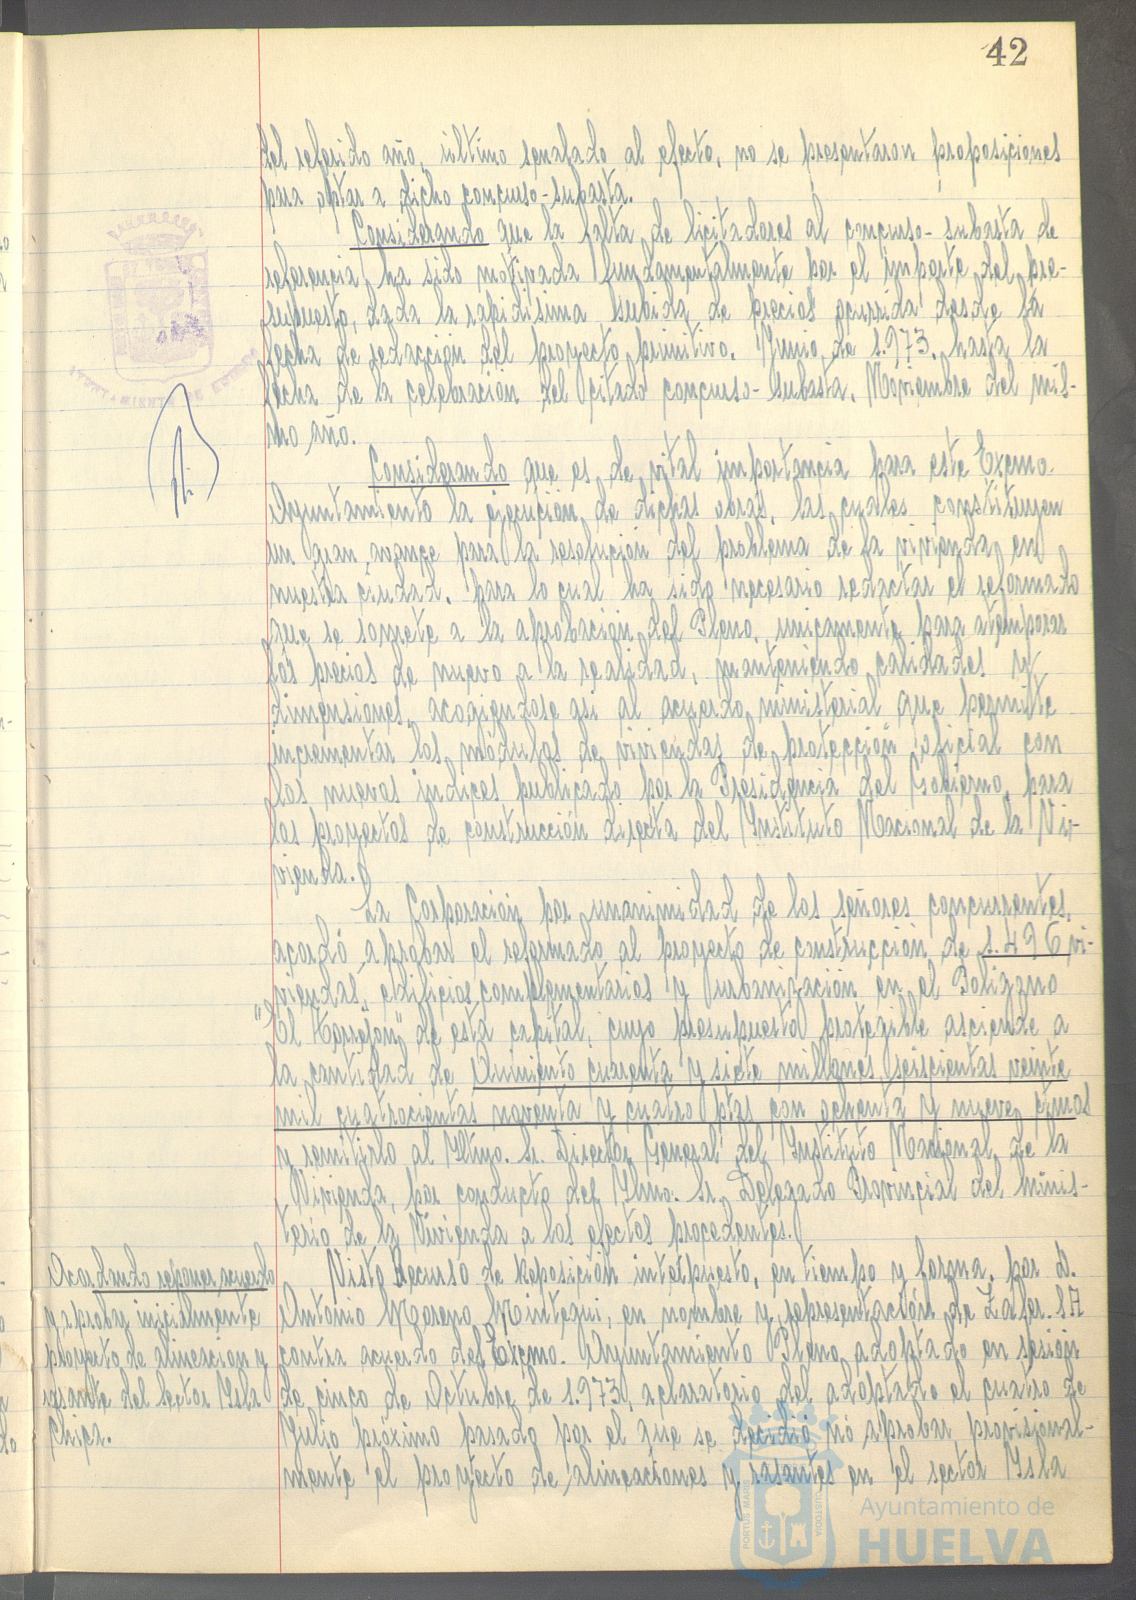 42
del referido año, último señalado al efecto, no se presentaron proposiciones
para optar a dicho concurso-subasta.
Considerando que la falta de licitadores al concurso-subasta de
referencia, ha sido motivada fundamentalmente por el importe del pre-
supuesto, dada la rapidísima subida de precios ocurrida desde la
fecha de redacción del proyecto primitivo, Junio de 1.973, hasta la
fecha de la celebración del citado concurso-subasta, Noviembre del mis-
mo año.
Considerando que es de vital importancia para este Excmo.
Ayuntamiento la ejecución de dichas obras, las cuales constituyen
un gran avance para la resolución del problema de la vivienda en
nuestra ciudad, para lo cual ha sido necesario redactar el reformado
que se somete a la aprobación del Pleno, unicamente para atemperar
los precios de nuevo a la realidad, manteniendo calidades y
dimensiones, acogiendose asi al acuerdo ministerial que permite
incrementar los módulos de viviendas de protección oficial con
los nuevos indices publicado por la Presidencia del Gobierno, para
los proyectos de construcción directa del Instituto Nacional de la Vi-
vienda.
La Corporación por unanimidad de los señores concurrentes,
acordó aprobar el reformado al proyecto de construcción de 1.496 vi-
viendas, edificios complementarios y urbanización en el Poligono
"El Torrejón" de esta capital, cuyo presupuesto protegible asciende a
la cantidad de Quiniento cuarenta y siete millones seiscientas veinte
mil cuatrocientas noventa y cuatro ptas con ochenta y nueve ctmos
y remitirlo al Iltmo. Sr. Director General del Instituto Nacional de la
Vivienda, por conducto del Ilmo. Sr. Delegado Provincial del Minis-
terio de la Vivienda a los efectos procedentes.
Acordando reponer acuerdo
y aprobar inicialmente
proyecto de alineacion y
rasante del sector Isla
Chica.
Visto Recurso de Reposición interpuesto, en tiempo y forma, por D.
Antonio Moreno Minteguí, en nombre y representación de Zafer. SA
contra acuerdo del Excmo. Ayuntamiento Pleno, adoptado en sesión
de cinco de Octubre de 1.973, aclaratorio del adoptado el cuatro de
Julio próximo pasado por el que se decidió no aprobar provisional-
mente el proyecto de alineaciones y rasantes en el sector Isla
PORTUS MARIS
CUSTODIA
Ayuntamiento de
HUELVA